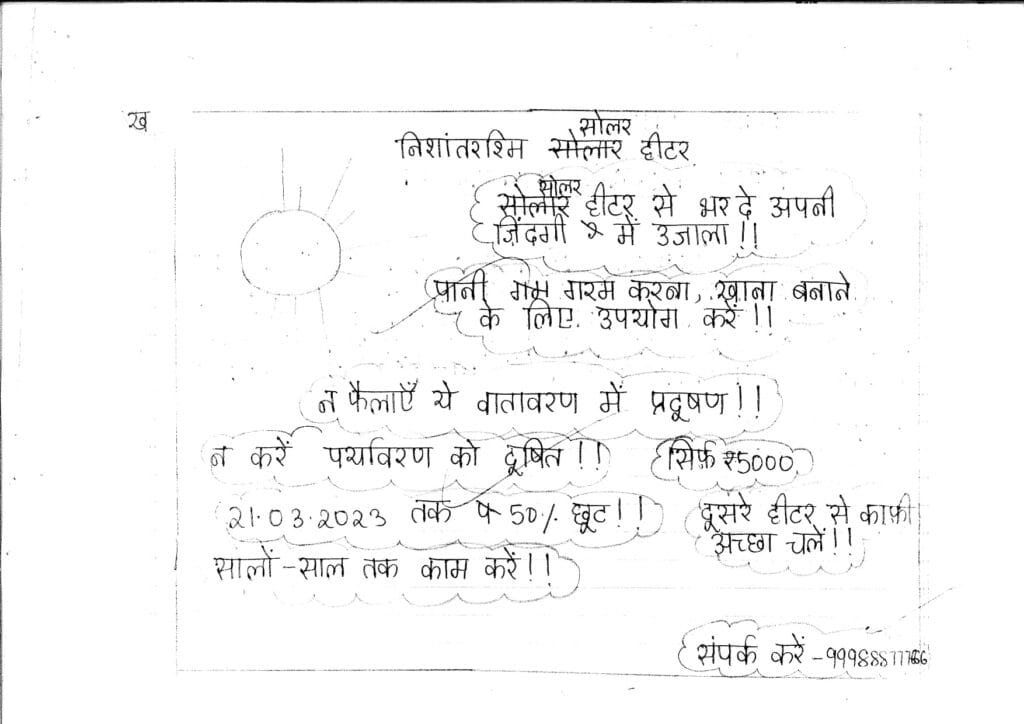 ख
सोलर
निशांतरश्मि सोलार हीटर
सोलर
सोलार हीटर से भर दे अपनी
ज़िंदगी में उजाला!!
पानी गम गरम करना, खाना बनाने
के लिए उपयोग करें!!
न फैलाएँ ये वातावरण में प्रदूषण!!
न करें पर्यावरण को दूषित!! सिर्फ़ ₹5000
21.03.2023 तक प 50% छूट!!
दूसरे हीटर से काफ़ी
अच्छा चलें!!
सालों-साल तक काम करें!!
संपर्क करें -